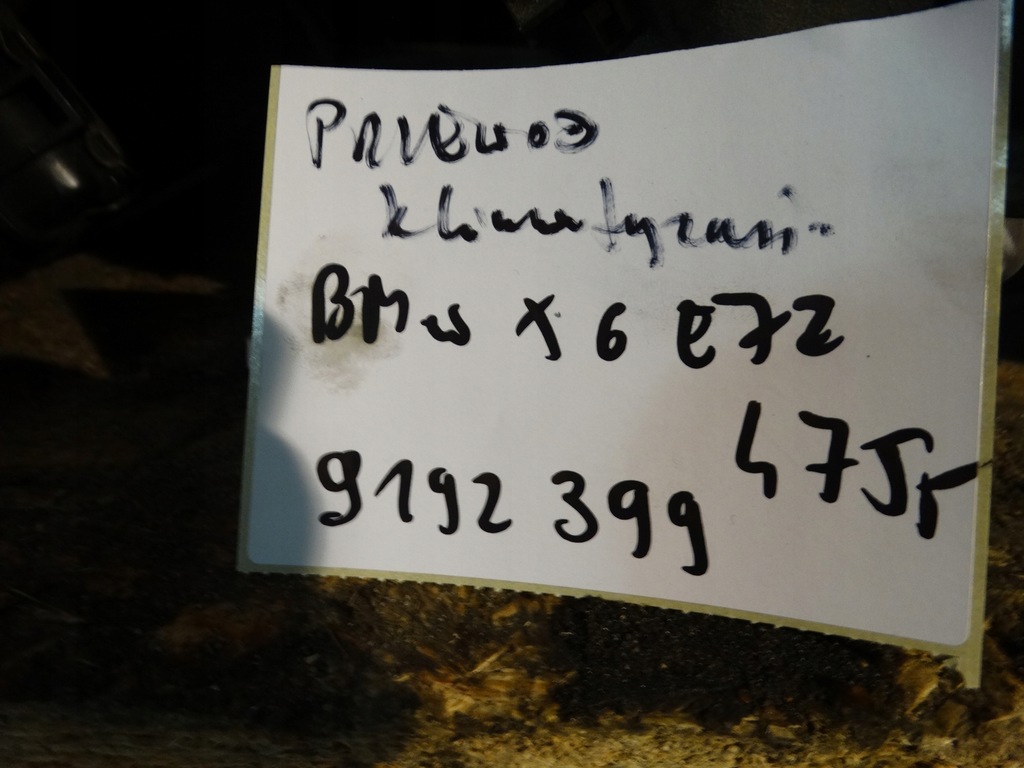 PRIEWOD
klimatyzacji
BMw X6 E72
9192 399 475r